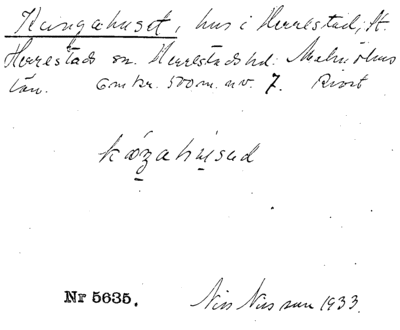 Kungahuset, hus i Herrestad, St.
Herrestads sn. Herrestads hd. Malmöhus
län. omkr. 500 m. nv. 7. Rivet
kázahúsəd
Nr 5635.
Nils Nilsson 1933.